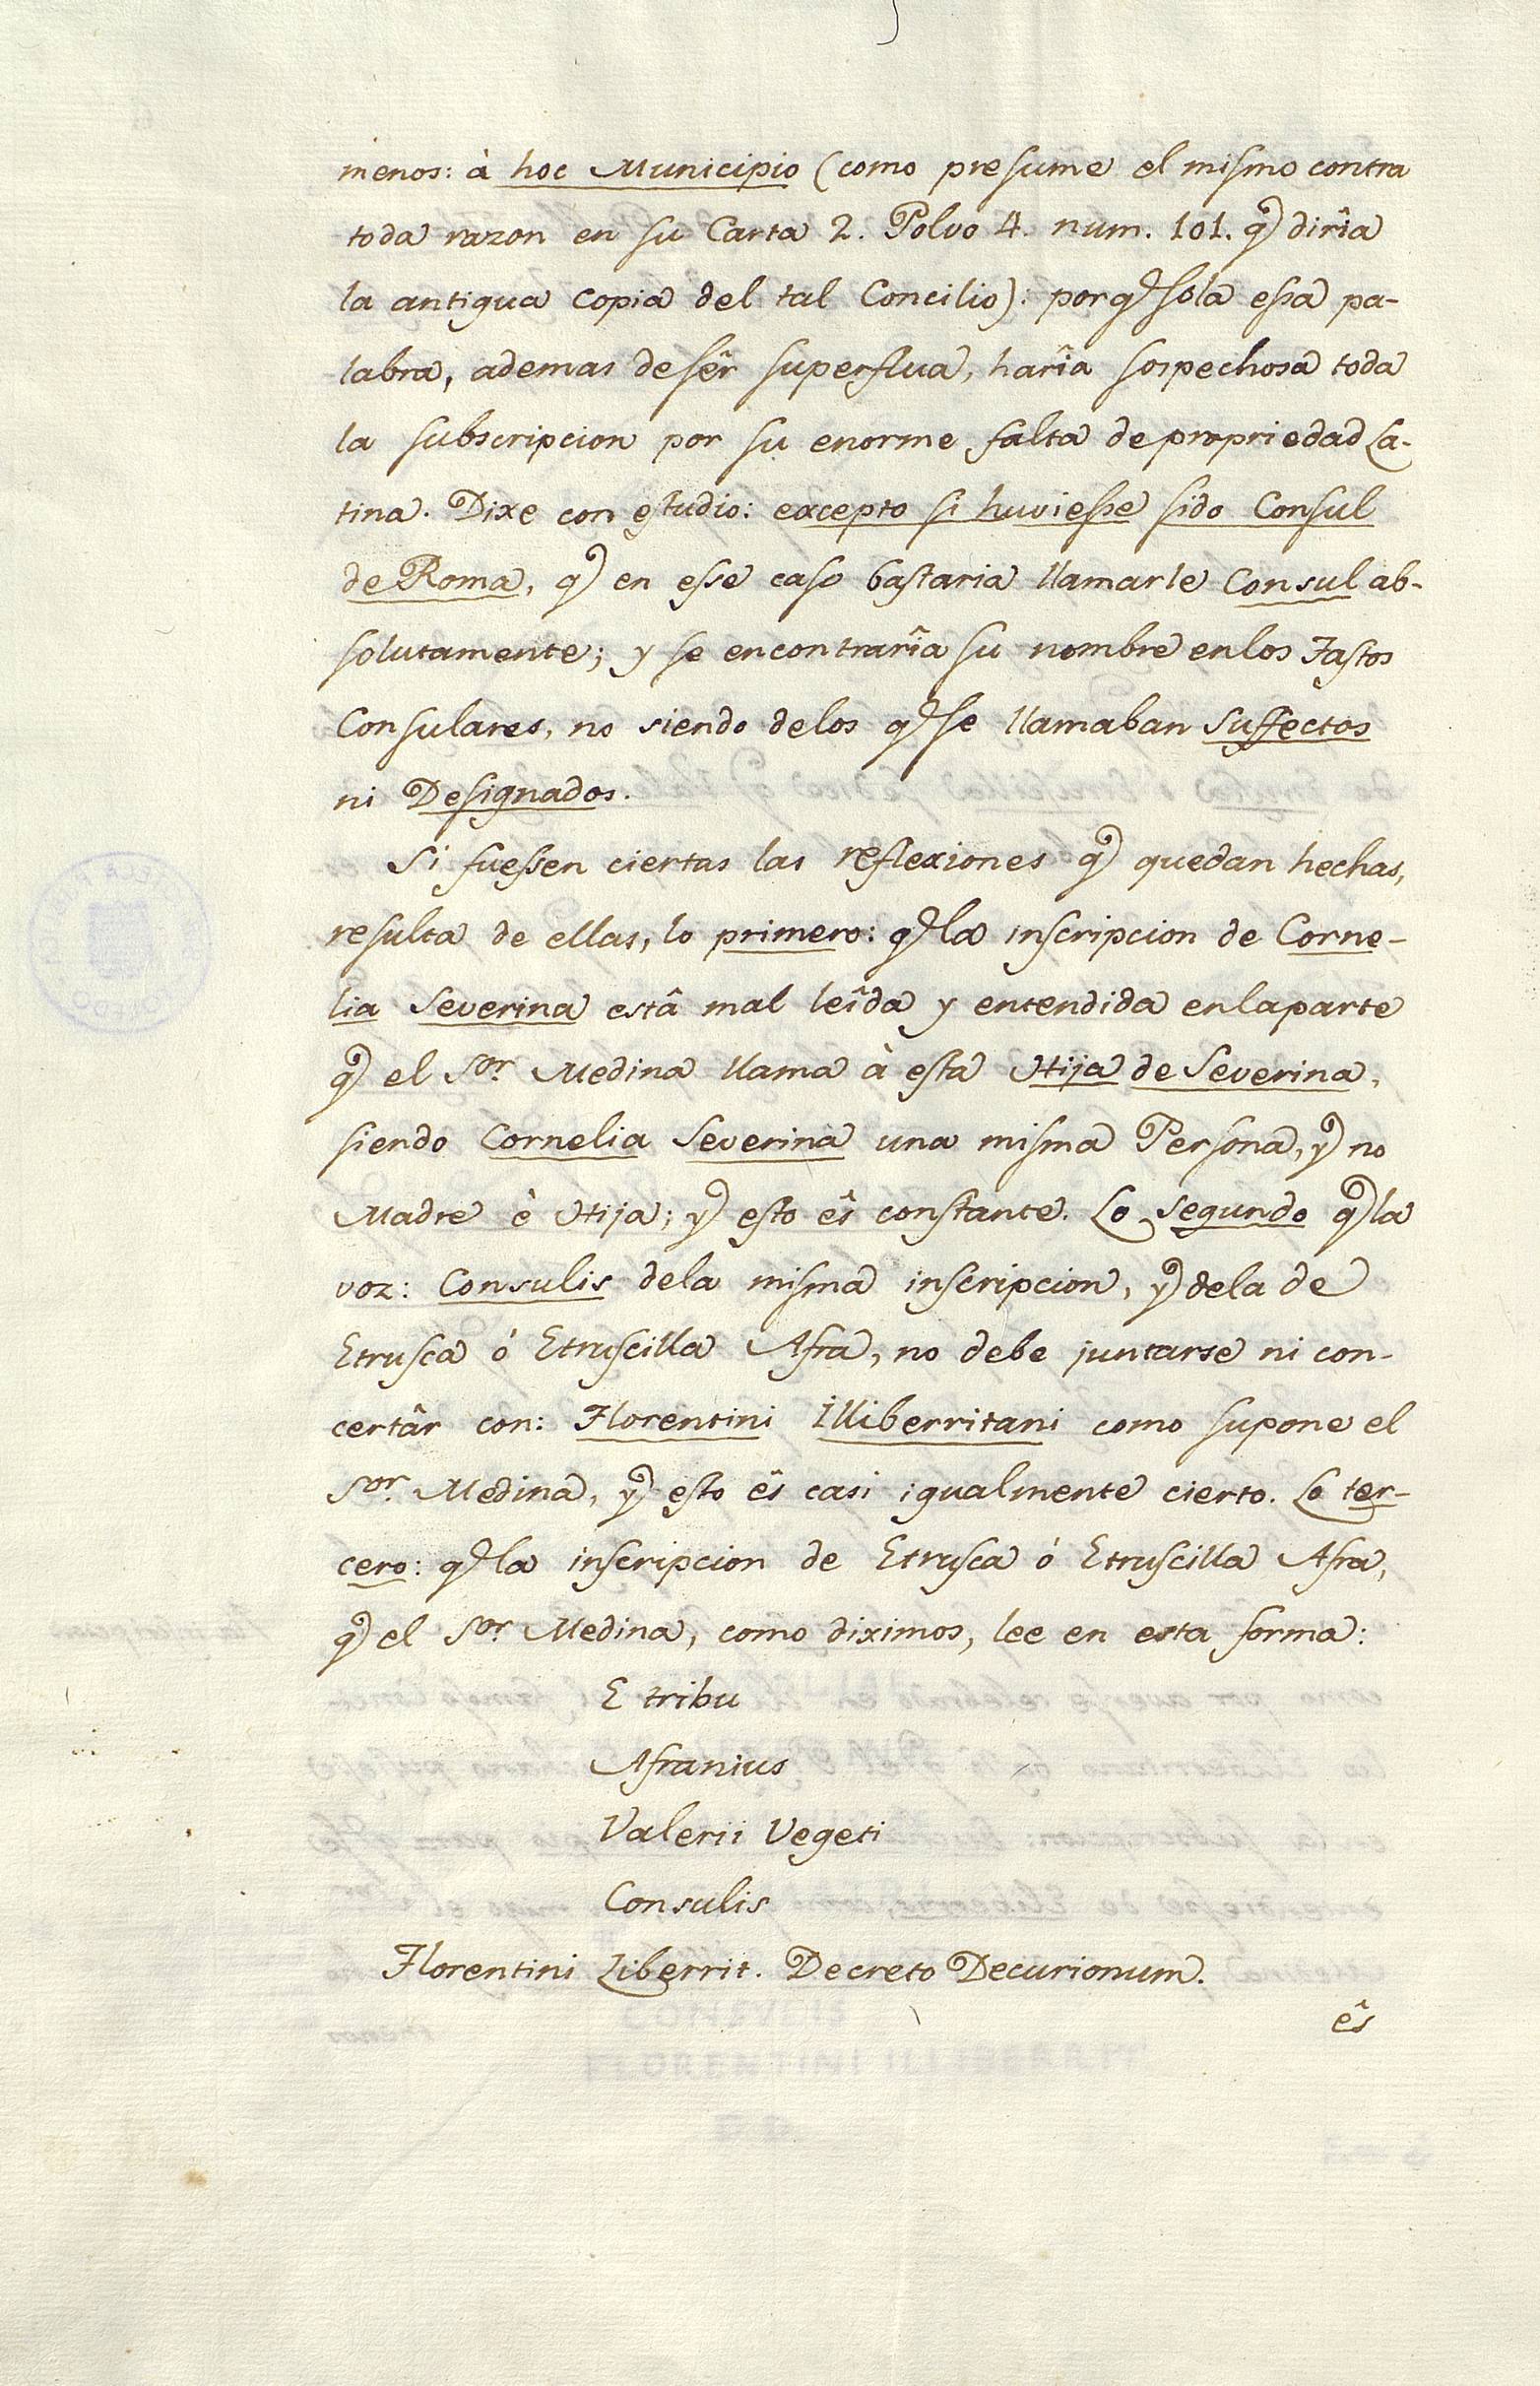 menos: à hoc Municipio (como presume el mismo contra
toda razon en su Carta 2. Polvo 4. num. 101. q̃ dirîa
la antigua copia del tal Concilio): porq̃ sola essa pa-
labra, ademas de sêr superflua, harîa sospechosa toda
la subscripcion por su enorme falta de propriedad La-
tina. Dixe con estudio: excepto si huviesse sido Consul
de Roma, q̃ en esse caso bastaria llamarle Consul ab-
solutamente; y se encontrarîa su nombre en los Fastos
Consulares, no siendo delos q̃ se llamaban Suffectos
ni Designados.
Si fuessen ciertas las reflexiones q̃ quedan hechas,
resulta de ellas, lo primero: q̃ la inscripcion de Corne-
lia Severina està mal leîda y entendida en la parte
q̃ el Sor. Medina llama à esta Hija de Severina,
siendo Cornelia Severina una misma Persona, y no
Madre è Hija; y esto ês constante. Lo segundo q̃ la
voz: Consulis dela misma inscripcion, y dela de
Etrusca ó Etruscilla Afra, no debe juntarse ni con-
certâr con: Florentini Illiberritani como supone el
Sor. Medina, y esto ês casi igualmente cierto. Lo ter-
cero: q̃ la inscripcion de Etrusca ó Etruscilla Afra,
q̃ el Sor. Medina, como diximos, lee en esta forma:
E tribu
Afranius
Valerii Vegeti
Consulis
Florentini Liberrit. Decreto Decurionum.
ês